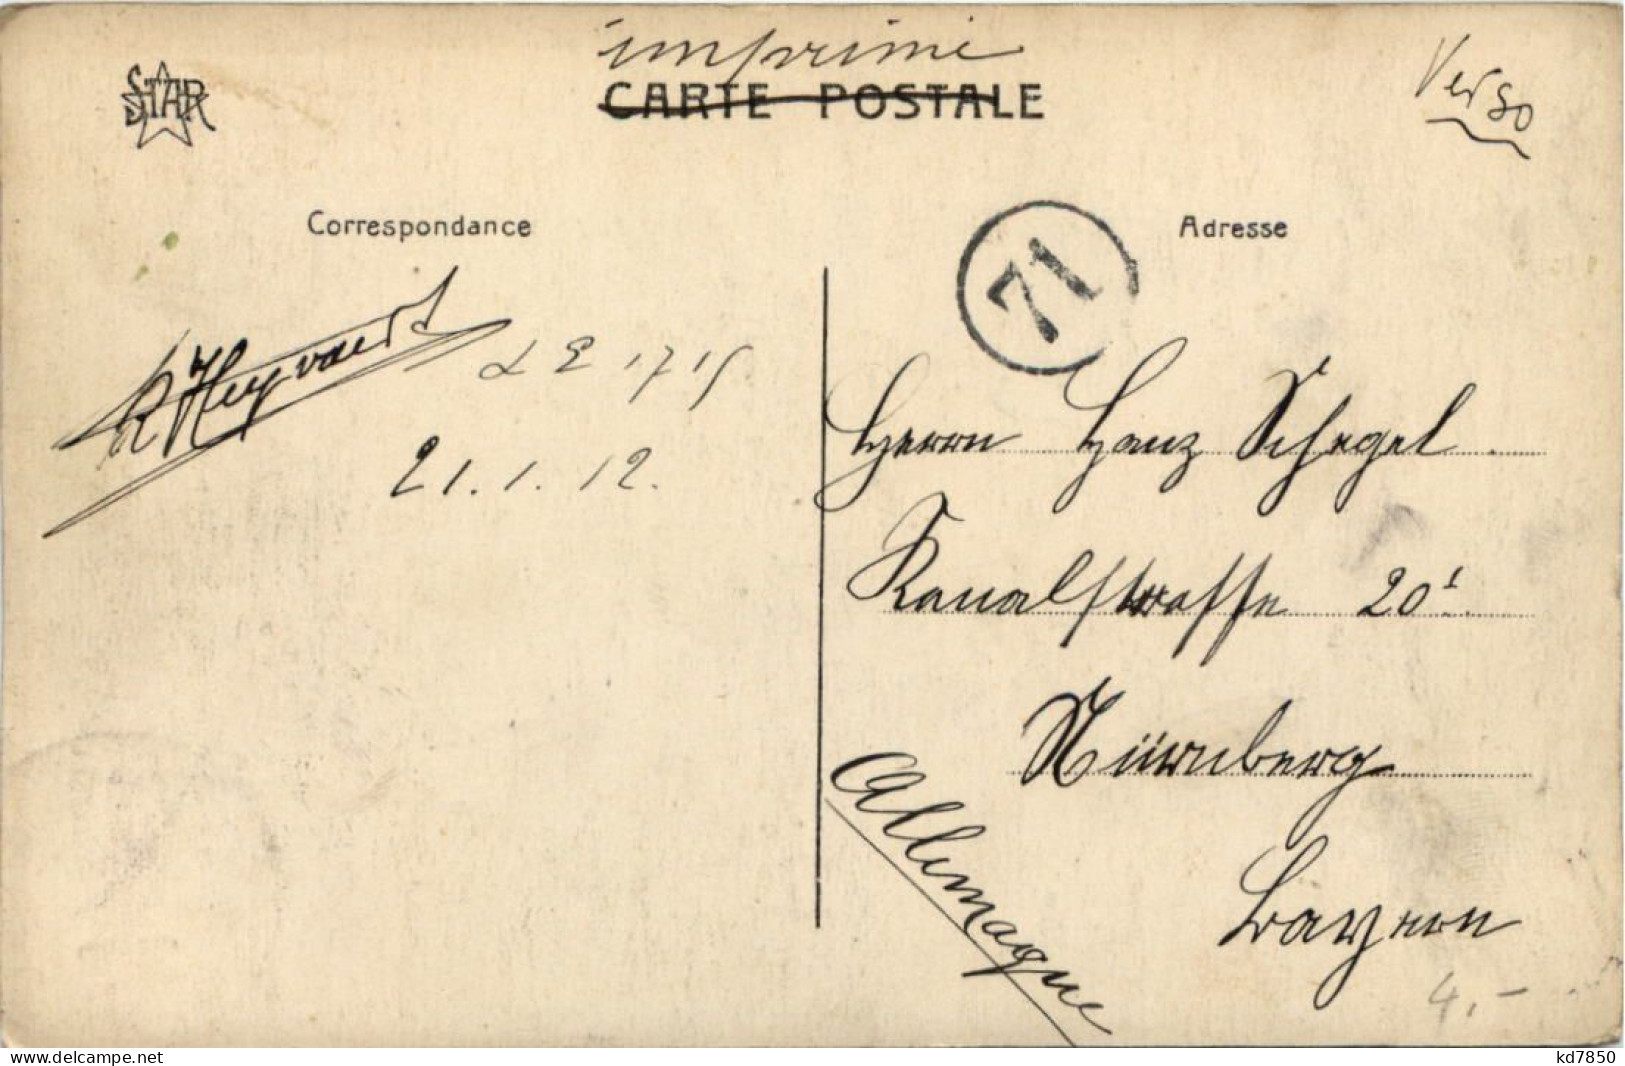 imprimé
STAR
CARTE POSTALE
Verso
Correspondance
Adresse
71
Heyvaert
L E 1715
21.1.12.
Herrn Hans Schegel
Kanalstrasse 20¹
Nürnberg
Allemagne
Bayern
4,-
www.delcampe.net
kd7850